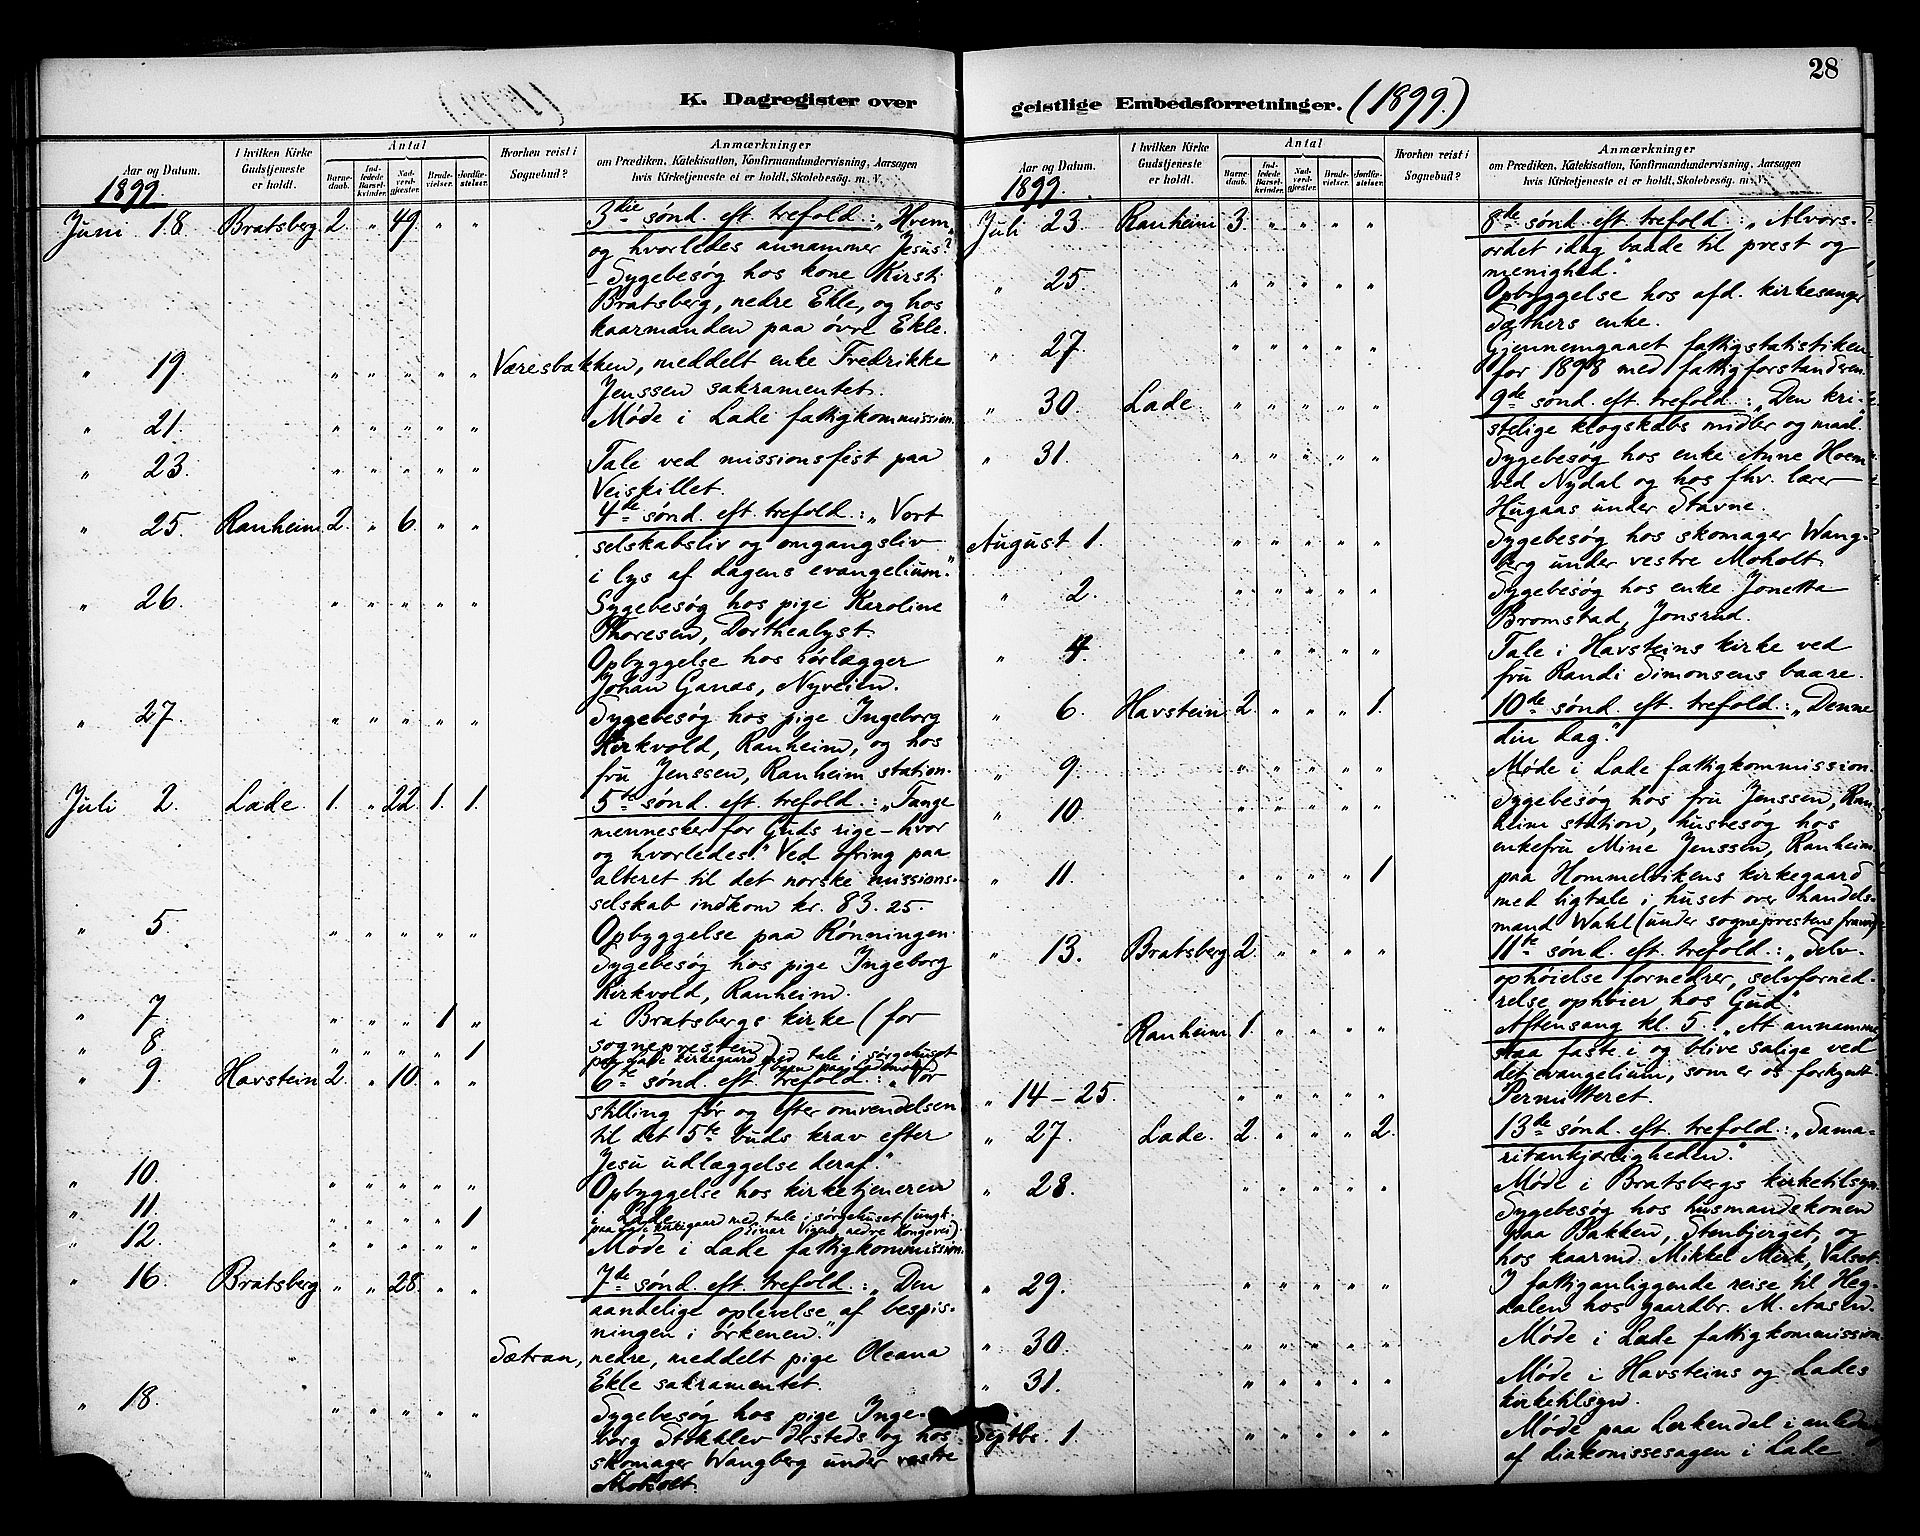 28
K. Dagregister over
geistlige Embedsforretninger. (1899.)
Aar og Datum.
1899.
I hvilken Kirke
Gudstjeneste
er holdt.
Antal
Barne-
daab.
Ind-
ledede
Barsel-
kvinder.
Nad-
verd-
gjester.
Brude-
vielser.
Jordfæ-
stelser.
Hvorhen reist i
Sognebud?
Anmærkninger
om Prædiken, Katekisation, Konfirmandundervisning, Aarsagen
hvis Kirketjeneste ei er holdt, Skolebesøg. m. v.
Juni 18 Bratsberg 2. " 49. " " 3die sønd. eft. trefold.: "Hvem
og hvorledes annammer Jesus?"
Sygebesøg hos kone Kirsti
Bratsberg, nedre Ekle, og hos
kaarmanden paa øvre Ekle.
" 19. " " " " " Væresbakken, meddelt enke Fredrikke
Jenssen sakramentet.
" 21. " " " " " Møde i Lade fattigkommission.
" 23. " " " " " Tale ved missionsfest paa
Veiskillet.
" 25. Ranheim 2. " 6. " " 4de sønd. eft. trefold.: "Vort
selskabsliv og omgangsliv
i lys af dagens evangelium."
" 26. " " " " " Sygebesøg hos pige Karoline
Thoresen, Dorthealyst.
Opbyggelse hos
Johan Ganas, Nyveien.
" 27. " " " " " Sygebesøg hos pige Ingeborg
Kirkvold, Ranheim, og hos
fru Jenssen, Ranheim station.
Juli 2. Lade. 1. " 22. 1. 1. 5te sønd. eft. trefold.: "Fange
mennesker for Guds rige – hvor
og hvorledes." Ved ofring paa
alteret til det norske missions-
selskab indkom kr. 83.25.
" 5. " " " " " Opbyggelse paa Rønningen.
Sygebesøg hos pige Ingeborg
Kirkvold, Ranheim.
" 7. " " " 1 " i Bratsbergs kirke (for
sognepresten)
" 8. " " " " 1 paa Lade kirkegaard med tale i sørgehuset
" 9. Havstein 2. " 10. " " 6te sønd. eft. trefold.: "Vor
stilling før og efter omvendelsen
til det 5te buds krav efter
Jesu udlæggelse deraf."
" 10. " " " " " Opbyggelse hos kirketjeneren
i Lade.
" 11. " " " " 1 paa Lade kirkegaard med tale i sørgehuset (ungk.
Einar Vigen, nedre Kongsvei).
" 12. " " " " " Møde i Lade fattigkommission.
" 16. Bratsberg " " 28. " " 7de sønd. eft. trefold.: "Den
aandelige oplevelse af bespis-
ningen i ørkenen."
Sætran, nedre, meddelt pige Oleana
Ekle sakramentet.
" 18. " " " " " Sygebesøg hos pige Inge-
borg Stokklev ørsteds og hos
skomager Wangberg under vestre
Moholt.
Aar og Datum.
1899.
I hvilken Kirke
Gudstjeneste
er holdt.
Antal
Barne-
daab.
Ind-
ledede
Barsel-
kvinder.
Nad-
verd-
gjester.
Brude-
vielser.
Jordfæ-
stelser.
Hvorhen reist i
Sognebud?
Anmærkninger
om Prædiken, Katekisation, Konfirmandundervisning, Aarsagen
hvis Kirketjeneste ei er holdt, Skolebesøg. m. v.
Juli 23. Ranheim 3. " " " " 8de sønd. eft. trefold.: "Alvors-
ordet idag baade til prest og
menighed."
" 25. " " " " " Opbyggelse hos afd. kirkesanger
Sæthers enke.
" 27. " " " " " Gjennemgaaet fattigstatistiken
for 1898 med fattigforstanderen.
" 30. Lade. " " " " " 9de sønd. eft. trefold.: "Den kri-
stelige klogskabs midler og maal."
" 31. " " " " " Sygebesøg hos enke Anne Hoem
ved Nydal og hos fhv. lærer
Hugaas under Stavne.
August 1. " " " " " Sygebesøg hos skomager Wang-
berg under vestre Moholt.
" 2. " " " " " Sygebesøg hos enke Jonetta
Bromstad, Jonsrud.
" 4. " " " " " Tale i Havsteins kirke ved
fru Randi Simonsens baare.
" 6. Havstein 2. " " " 1. 10de sønd. eft. trefold.: "Denne
din dag."
" 9. " " " " " Møde i Lade fattigkommission.
" 10. " " " " " Sygebesøg hos fru Jenssen, Ran-
heim station, husbesøg hos
enkefru Mine Jenssen, Ranheim.
" 11. " " " " 1 paa Hommelvikens kirkegaard
med ligtale i huset over handels-
mand Wahl (under sogneprestens fravær).
" 13. Bratsberg 2. " " " " 11te sønd. eft. trefold.: "Selv-
ophøielse fornedrer, selvforned-
relse ophøier hos Gud."
Ranheim 1. " " " " Aftensang kl. 5. "At annamme,
staa faste i og blive salige ved
det evangelium, som er os forkyndt.
" 14 – 25. " " " " " Permitteret.
" 27. Lade. 2. " " " 2. 13de sønd. eft. trefold.: "Sama-
ritankjærligheden."
" 28. " " " " " Møde i Bratsbergs kirketilsyn.
Sygebesøg hos husmandskonen
paa Bakken, Stenbjerget, og
hos kaarmd. Mikkel Merk, Valset.
" 29. " " " " " I fattiganliggende reise til Heg-
dalen hos gaardbr. M. Aasen.
" 30. " " " " " Møde i Lade fattigkommission.
" 31. " " " " " Møde i Havsteins og Lades
kirketilsyn.
Septbr. 1 " " " " " Møde paa Lerkendal i anledning
af diakonissesagen i Lade